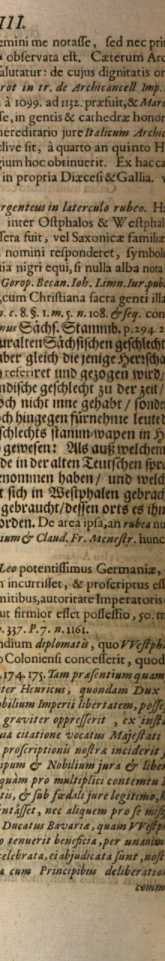 III.
emini me notasse, sed nec prin
observata est. Cæterum Arc
alutatur: de cujus dignitatis or
rot in tr. de Archicancell Imp.
à 1099. ad 1132. præfuit, & Mar
se, in gentis & cathedræ honor
hereditario jure Italicum Archic
live sit, à quarto an quinto H
gium hoc obtinuerit. Ex hac ca
in propria Diœcesi & Gallia.
rgenteus in laterculo rubeo. H
inter Ostphalos & Westphal
sera fuit, vel Saxonicæ familiæ
nomini responderet, symbol
ia nigri equi, si nulla alba nota
Gorop. Becan. lob. Limn. Iur. publ
, cum Christiana sacra genti illa
p. c. 8. §. 1. m. 5. n. 108. & seq. con
nus Sächs. Stammb. p. 294. 2
uralten Sächsischen geschlecht
aber gleich die jenige Herrscha
referiret und gezogen wird/
ndische geschlecht zu der zeit
och nicht inne gehabt / sonde
ch hingegen fürnehme leute d
schlechts stamm-wapen in H
gewesen? Als auß welchem
de in der alten Teutschen spra
enommen haben / und welch
t sich in Westphalen gebrac
gebraucht/dessen orts es ihn
orden. De area ipsa, an rubea nu
ium & Claud. Fr. Menestr. hunc
Leo potentissimus Germaniæ,
n incurrisset, & proscriptus est
mitibus, autoritate Imperatoris
ut firmior esset possessio, 50. m
. 337. P. 7. n. 1161.
ndium diplomatis, quo VVestph
o Coloniensi concesserit, quod
. 174. 175. Tam præsentium quam
ter Henricus, quondam Dux
obilium Imperii libertatem, posse
graviter oppresserit, ex inst
ua citatione vocatus Majestati
proscriptionis nostræ inciderit
ipum & Nobilium jura & liber
quàm pro multiplici contemtu
tis, & sub fœdali jure legitimo, t
ntâsset, nec aliquem pro se misis
Ducatus Bavariæ, quam VVestp
o tenuerit beneficia, per unanim
celebrata, ei abjudicata sunt, nost
a cum Principibus deliberation
comm